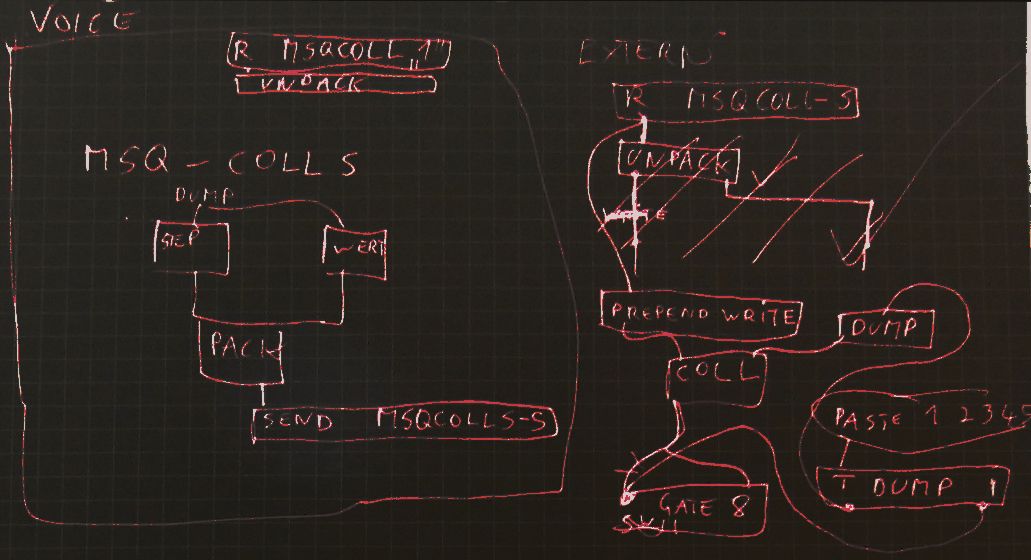 VOICE
R MSQCOLL "1"
UNPACK
MSQ - COLLS
DUMP
STEP
WERT
PACK
SEND MSQCOLLS-S
EXTERN
R MSQCOLL-S
UNPACK
PREPEND WRITE
DUMP
COLL
PASTE 1 2345
T DUMP 1
GATE 8